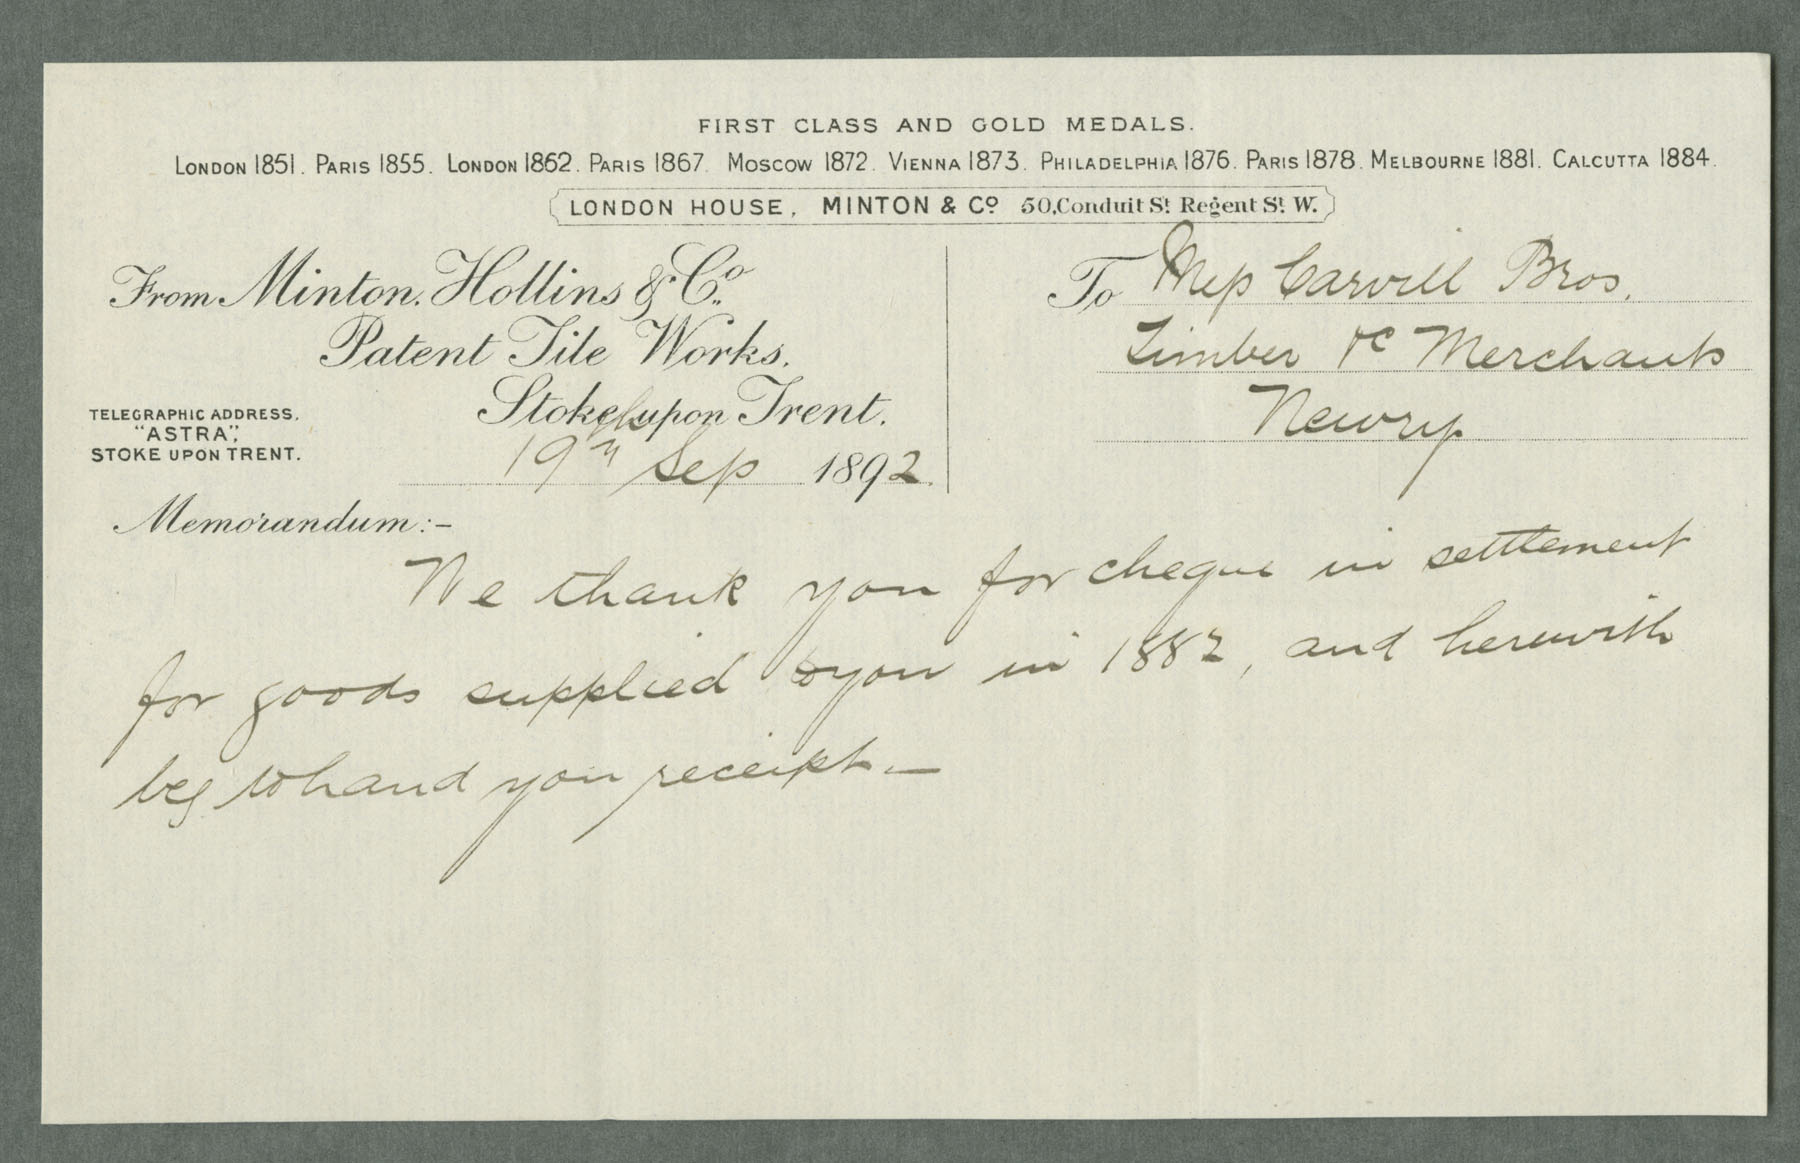 FIRST CLASS AND GOLD MEDALS.
LONDON 1851. PARIS 1855. LONDON 1862. PARIS 1867. MOSCOW 1872. VIENNA 1873. PHILADELPHIA 1876. PARIS 1878. MELBOURNE 1881. CALCUTTA 1884.
LONDON HOUSE, MINTON & Co 50, Conduit St Regent St W.
From Minton, Hollins & Co.
Patent Tile Works,
Stoke upon Trent.
TELEGRAPHIC ADDRESS,
"ASTRA",
STOKE UPON TRENT.
19th Sep 1892.
To Mess Carvill Bros.
Timber &c Merchants
Newry
Memorandum:-
We thank you for cheque in settlement
for goods supplied to you in 1882, and herewith
beg to hand you receipt.—